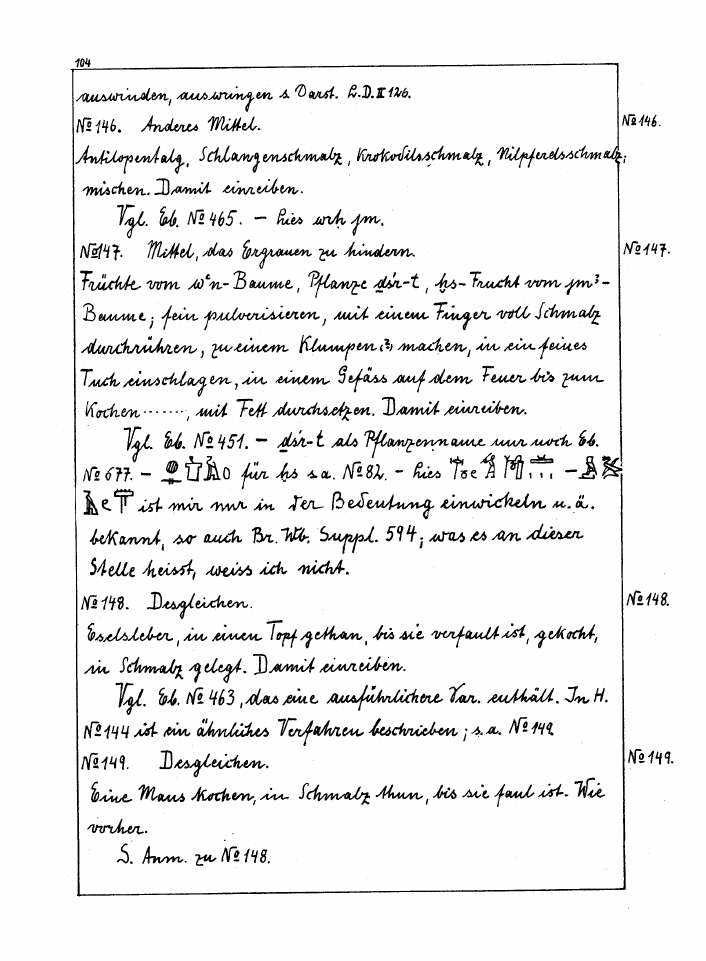 104
auswinden, auswringen s Darst. L.D. II 126.
№ 146. Anderes Mittel.
№ 146.
Antilopentalg, Schlangenschmalz, Krokodilsschmalz, Nilpferdsschmalz;
mischen. Damit einreiben.
Vgl. Eb. № 465. – lies wrḥ jm.
№ 147. Mittel, das Ergrauen zu hindern.
№ 147.
Früchte vom wꜥn-Baume, Pflanze dšr-t, ḫs-Frucht vom jmꜣ-
Baume; fein pulverisieren, mit einem Finger voll Schmalz
durchrühren, zu einem Klumpen (?) machen, in ein feines
Tuch einschlagen, in einem Gefäss auf dem Feuer bis zum
Kochen ......., mit Fett durchsetzen. Damit einreiben.
Vgl. Eb. № 451. – dšr-t als Pflanzenname nur noch Eb.
№ 677. – für ḫs s.a. № 82. – lies –
ist mir nur in der Bedeutung einwickeln u.ä.
bekannt, so auch Br. Wb. Suppl. 594; was es an dieser
Stelle heisst, weiss ich nicht.
№ 148. Desgleichen.
№ 148.
Eselsleber, in einen Topf gethan, bis sie verfault ist, gekocht,
in Schmalz gelegt. Damit einreiben.
Vgl. Eb. № 463, das eine ausführlichere Var. enthält. In H.
№ 144 ist ein ähnliches Verfahren beschrieben; s.a. № 149.
№ 149. Desgleichen.
№ 149.
Eine Maus kochen, in Schmalz thun, bis sie faul ist. Wie
vorher.
S. Anm. zu № 148.